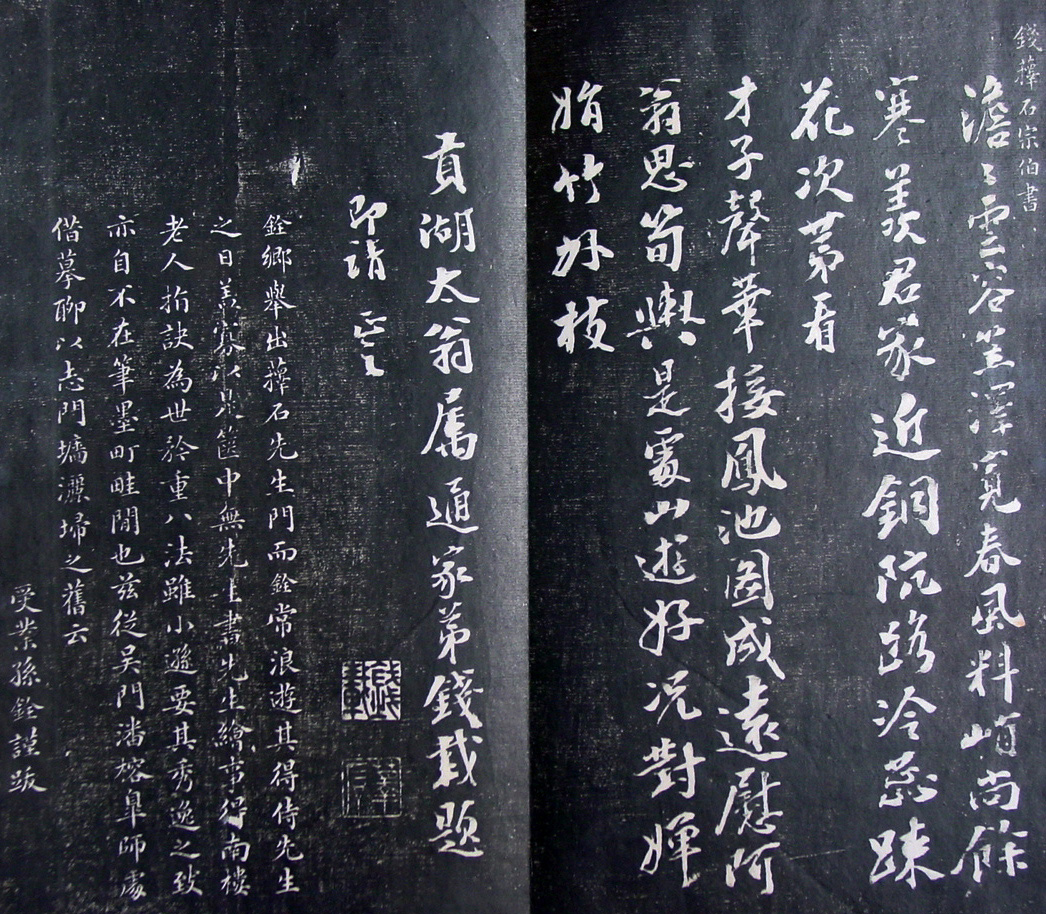 錢蘀石宗伯書
澹澹雲容笠澤寬春風料峭尚餘
寒羨君家近銅阬路冷蕊疎
花次第看
才子聲華接鳳池圖成遠慰阿
翁思筍輿是處山遊好況對嬋
娟竹外枝
貢湖太翁屬通家弟錢載題
即請正之
銓鄉舉出蘀石先生門而銓常浪遊其得侍先生
之日蓋寡以是篋中無先生書先生繪事得南樓
老人指訣為世所重八法雖小遜要其秀逸之致
亦自不在筆墨町畦間也茲從吳門潘榕皐師處
借摹聊以志門墻灑埽之舊云
受業孫銓謹跋